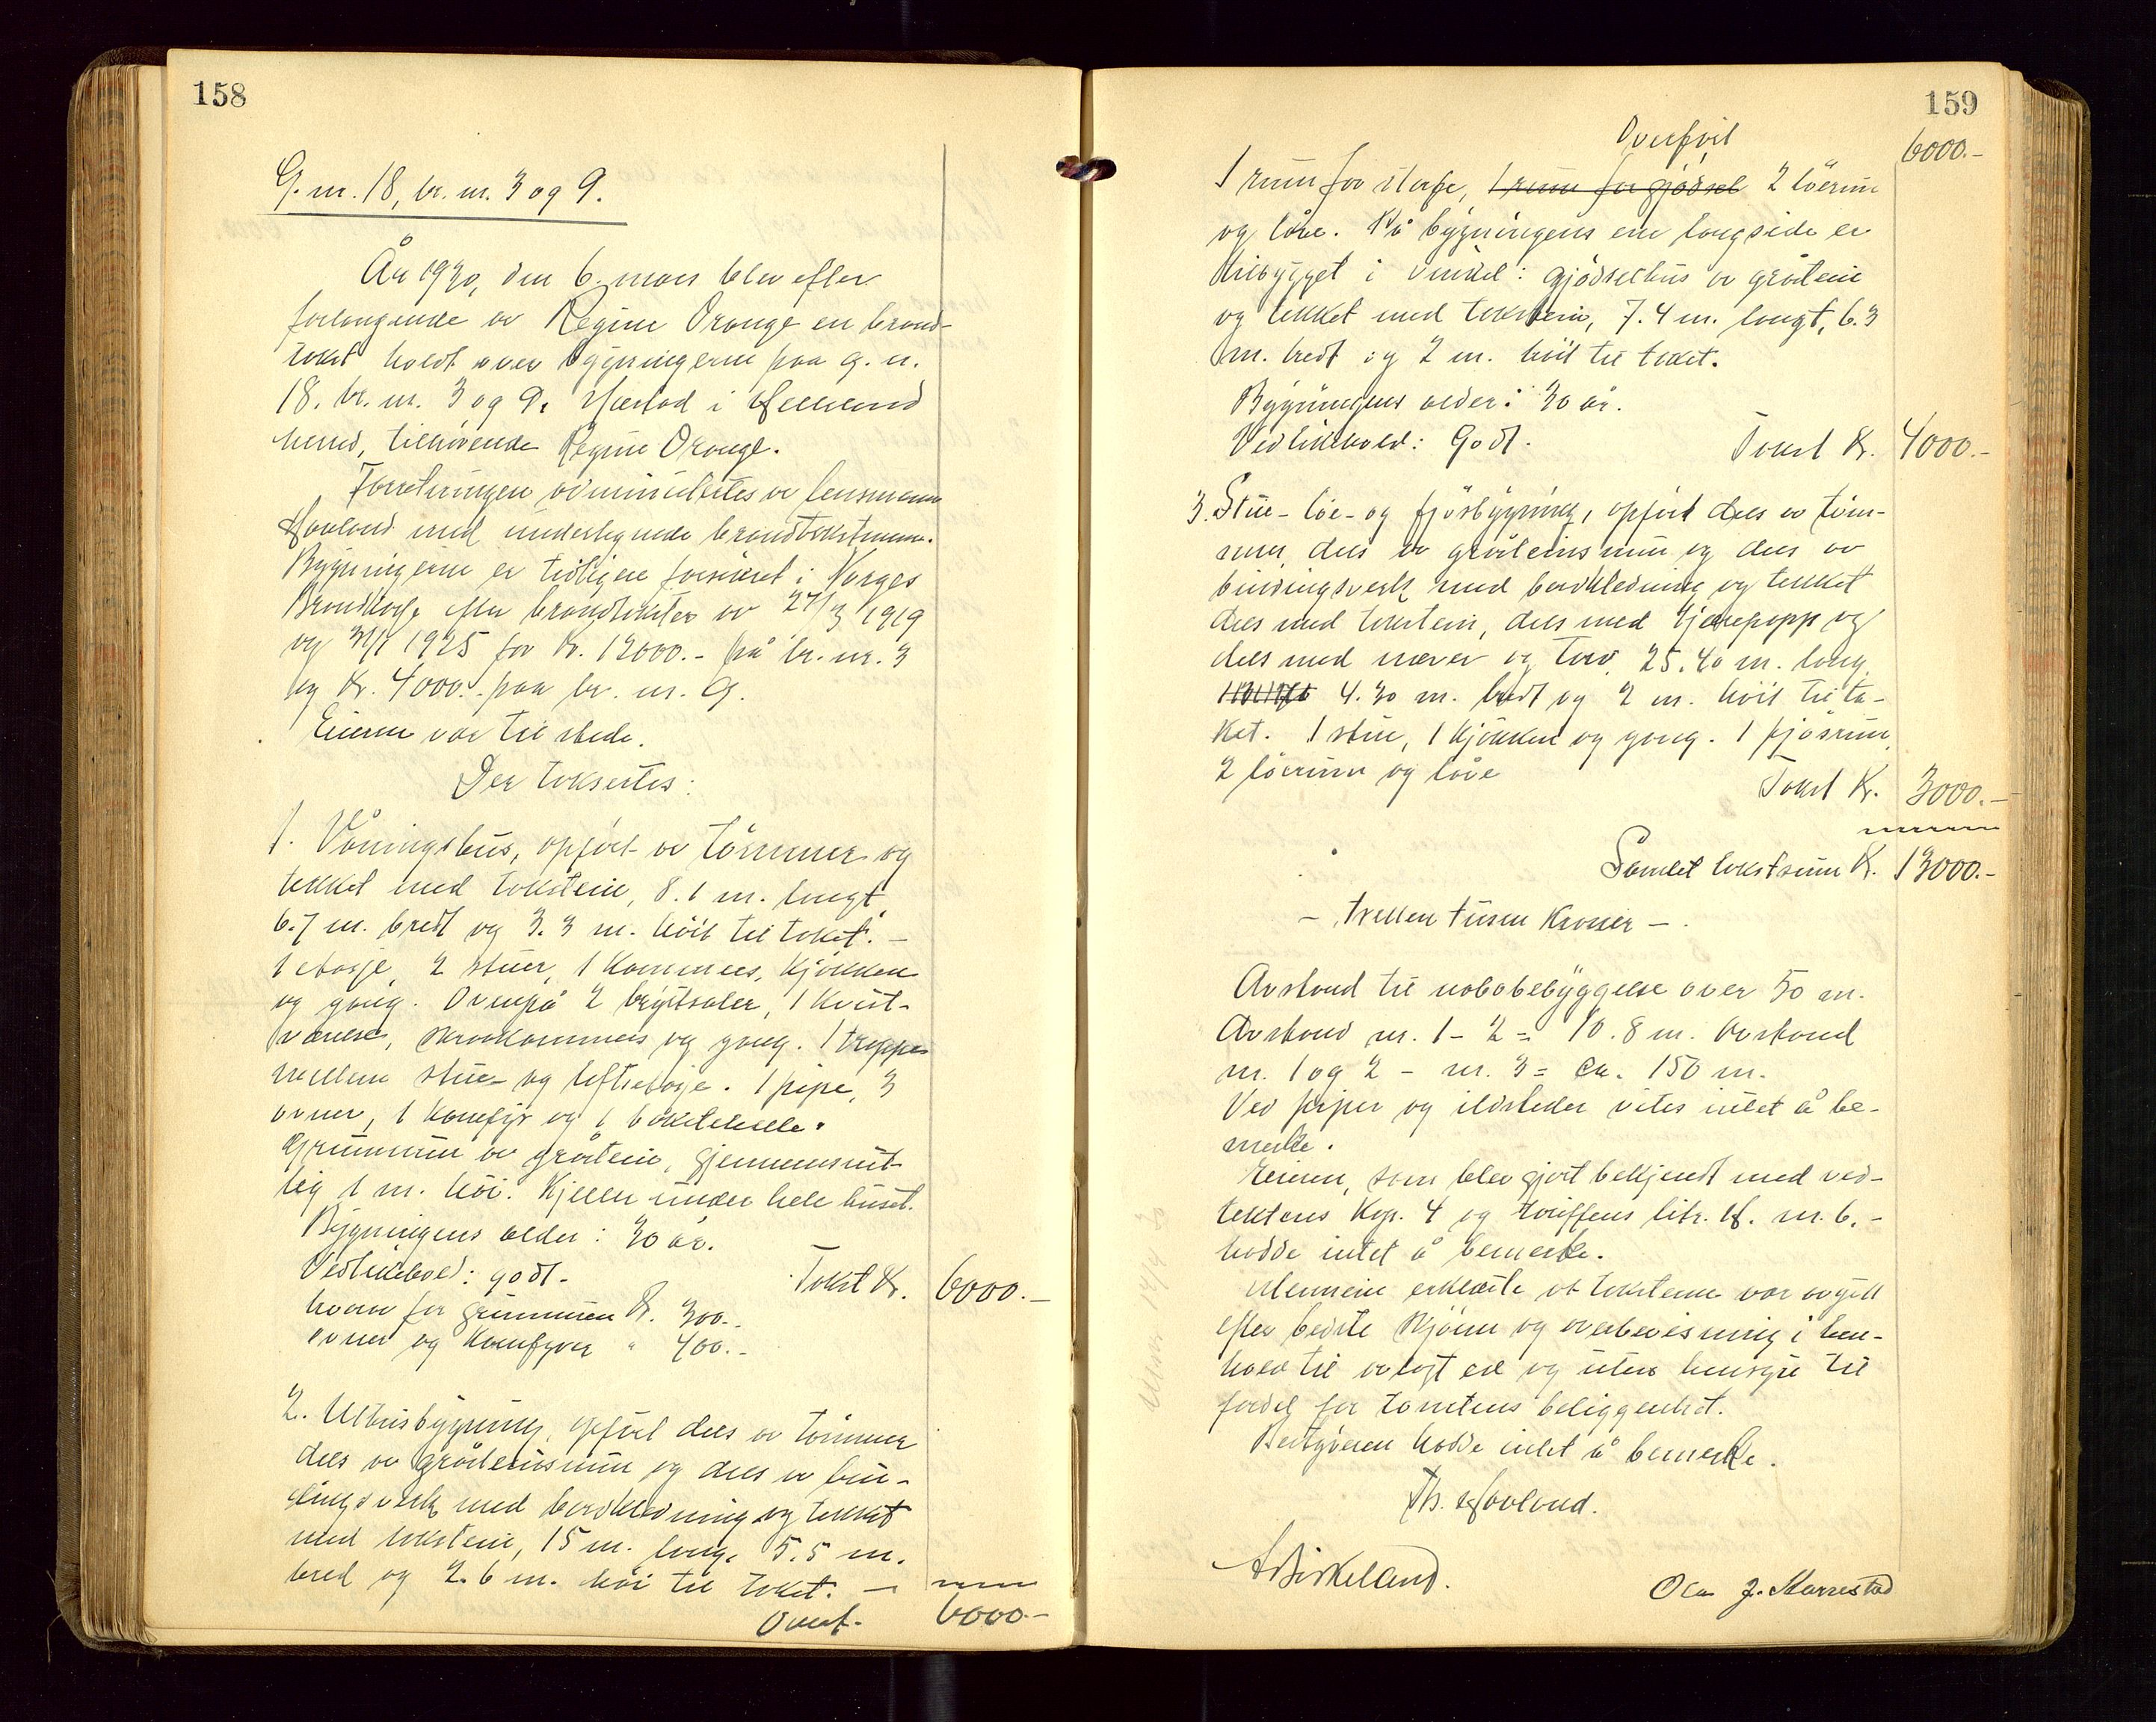 158
G. nr. 18, br. nr. 3 og 9.
År 1930, den 6. mars blev efter
forlangende av Regine Orange en brand-
takst holdt over bygningerne paa g. nr.
18. br. nr. 3 og 9. i
herred, tilhørende Regine Orange.
Forretningen administrertes av lensmann
Havland med undertegnede brandtakstmenn.
Bygningerne er tidligere forsikret i Norges
Brandkasse efter brandtakster av 27/3 1919
og 31/1 1925 for Kr. 12000.- på br. nr. 3
og Kr. 4000.- paa br. nr. 9.
Eieren var til stede.
Der taksertes:
1. Våningshus, opført av tømmer og
tekket med takstein, 8.1 m. langt,
6.7 m. bredt og 3.3 m. høit til taket. -
1 etasje, 2 stuer, 1 kammers, kjøkken
og gang. Ovenpå 2 brystsaler, 1 kvist-
værelse, skraakammers og gang. 1 trappe
mellem stue- og loftsetasje. 1 pipe, 3
ovner, 1 komfyr og 1
Grunnmur av gråstein, gjennemsnit-
lig 1 m. høi. Kjeller under hele huset.
Bygningens alder: 30 år.
Vedlikehold: godt. Takst Kr. 6000.-
hvorav for grunnmuren Kr. 300.-
ovner og komfyrer " 400.-
2. Uthusbygning, opført dels av tømmer
dels av gråsteinsmur og dels av bin-
dingsverk med bordkledning og tekket
med takstein, 15 m. lang, 5.5 m.
bred og 2.6 m. høi til taket. -
Overf. 6000.-
159
Overført 6000.-
1 rum for storfe, 1 rum for gjødsel 2 løerum
og låve. På bygningens ene langside er
tilbygget i vinkel: gjødselhus av gråstein
og tekket med takstein, 7.4 m. langt, 6.3
m. bredt og 2 m. høit til taket.
Bygningens alder: 30 år.
Vedlikehold: Godt. Takst Kr. 4000.-
3. Stue- løe- og fjøsbygning, opført dels av tøm-
mer, dels av gråsteinsmur og dels av
bindingsverk med bordkledning og tekket
dels med takstein, dels med tjærepapp og
dels med never og torv, 25.40 m. lang,
4.30 m. bredt og 2 m. høit til ta-
ket. 1 stue, 1 kjøkken og gang. 1 fjøsrum,
2 løerum og låve
Takst Kr. 3000.-
Samlet takstsum Kr. 13000.-
- tretten tusen kroner -.
Avstand til nabobebyggelse over 50 m.
Avstand nr. 1 - 2 = 10.8 m. Avstand
nr. 1 og 2 - nr. 3 = ca. 150 m.
Ved piper og ildsteder vites intet å be-
merke.
Eieren, som blev gjort bekjendt med ved-
tektenes kap. 4 og tariffens litr. H. nr. 6, -
hadde intet å bemerke.
Mennene erklærte at takstene var avgitt
efter bedste skjønn og overbevisning i hen-
hold til avlagt ed og uten hensyn til
fordel for tomtens beliggenhet.
Bestyreren hadde intet å bemerke.
Th. Havland.
A Birkeland.
Ola J. Skarrestad